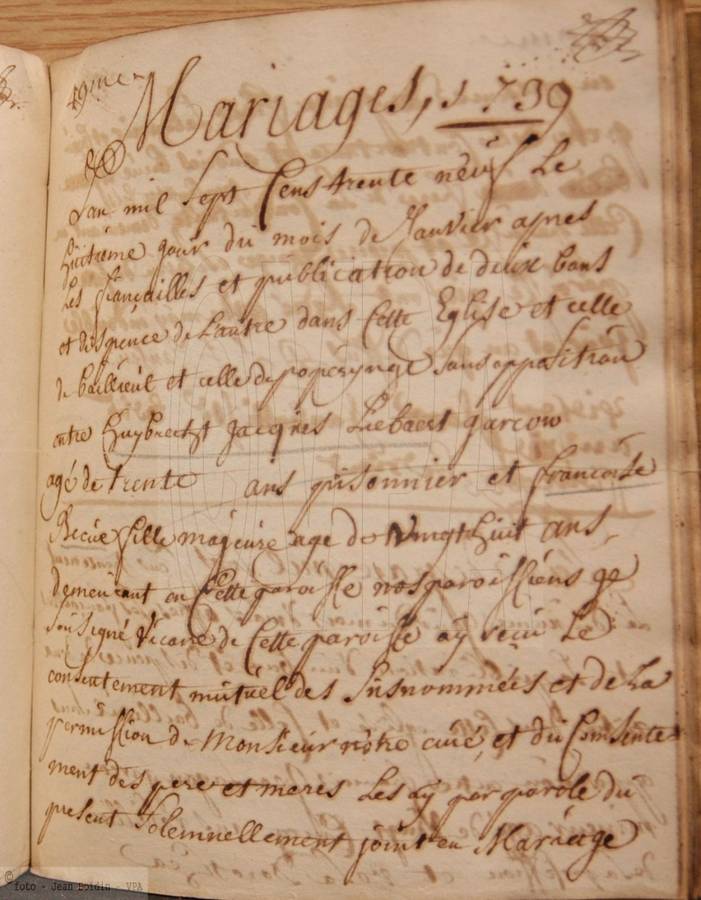 49me
Mariages, 1739
Lan mil Sept Cens trente neuf Le
huitieme jour du mois de Janvier apres
Les fiançailles et publication de deux bans
et dispence de Lautre dans Cette Eglise et celle
de bailleul et celle de poperynge Sans opposition
entre huybrecht jacques Liebaert garcon
agé de trente ans prisonnier et francoise
Becüe fille majeure age de Vingt huit ans,
demeurant en Cette paroisse nos paroissiens je
Sousigné Vicaire de Cette paroisse ay recü Le
consentement mutüel des Susnommées et de La
permission de Monsieur nôtre curé, et du Consente
ment des pere et meres Les ay par parole du
present Solemnellement joint en Mariage
© foto - Jean Boidin - VPA